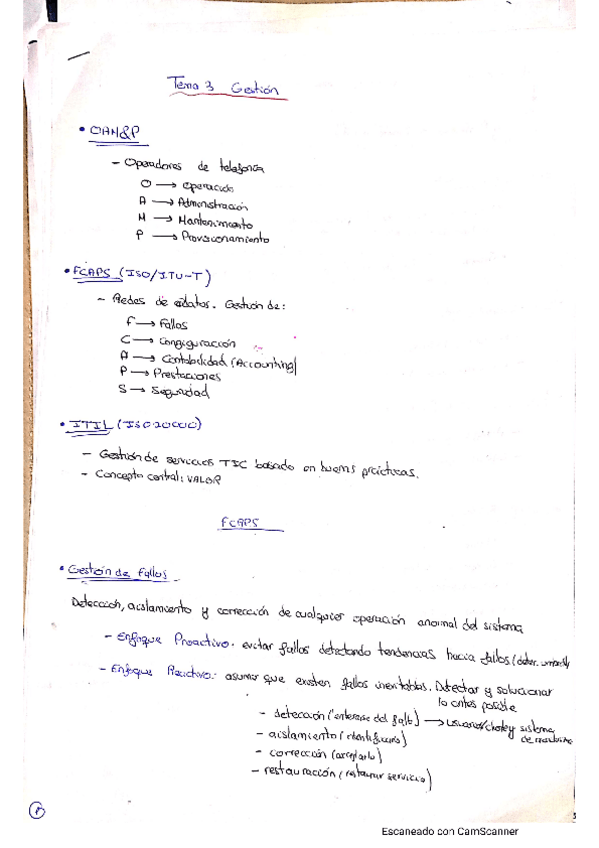 Tema 3 Gestión
• OAM&P
- Operadores de telefonía
O → Operación
A → Administración
M → Mantenimiento
P → Provisionamiento
• FCAPS (ISO/ITU-T)
- Redes de datos. Gestión de:
F → Fallos
C → Configuración
A → Contabilidad (Accounting)
P → Prestaciones
S → Seguridad
• ITIL (ISO 20000)
- Gestión de servicios TIC basado en buenas prácticas.
- Concepto central: VALOR
FCAPS
• Gestión de fallos
Detección, aislamiento y corrección de cualquier operación anormal del sistema
- Enfoque Proactivo: evitar fallos detectando tendencias hacia fallos (
- Enfoque Reactivo: asumir que existen fallos inevitables. Detectar y solucionar
lo antes posible
- detección (enterarse del fallo) → usuarios/ y sistema
- aislamiento (identificarlo)
de monitorizo
- corrección (arreglarlo)
- restauración (restaurar servicio)
1
Escaneado con CamScanner